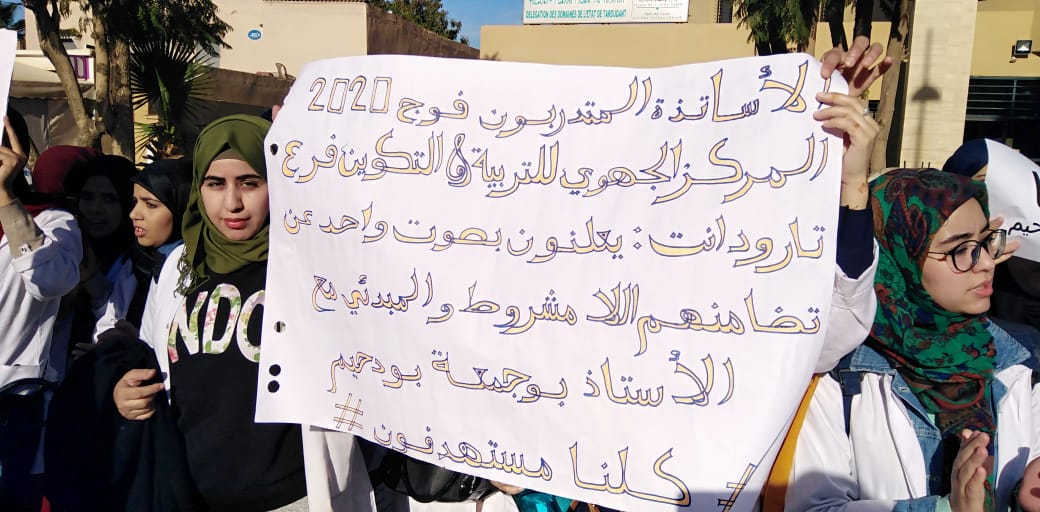 DELEGATION DES DOMAINES DE L'ETAT DE TAROUDANT
لأساتذة المتدربون فوج 2020
المركز الجهوي للتربية و التكوين فرع
تارودانت : يعلنون بصوت واحد عن
تضامنهم اللا مشروط و المبدئي مع
الأستاذ بوجمعة بودحيم
# كلنا مستهدفون #
NDO
حيم